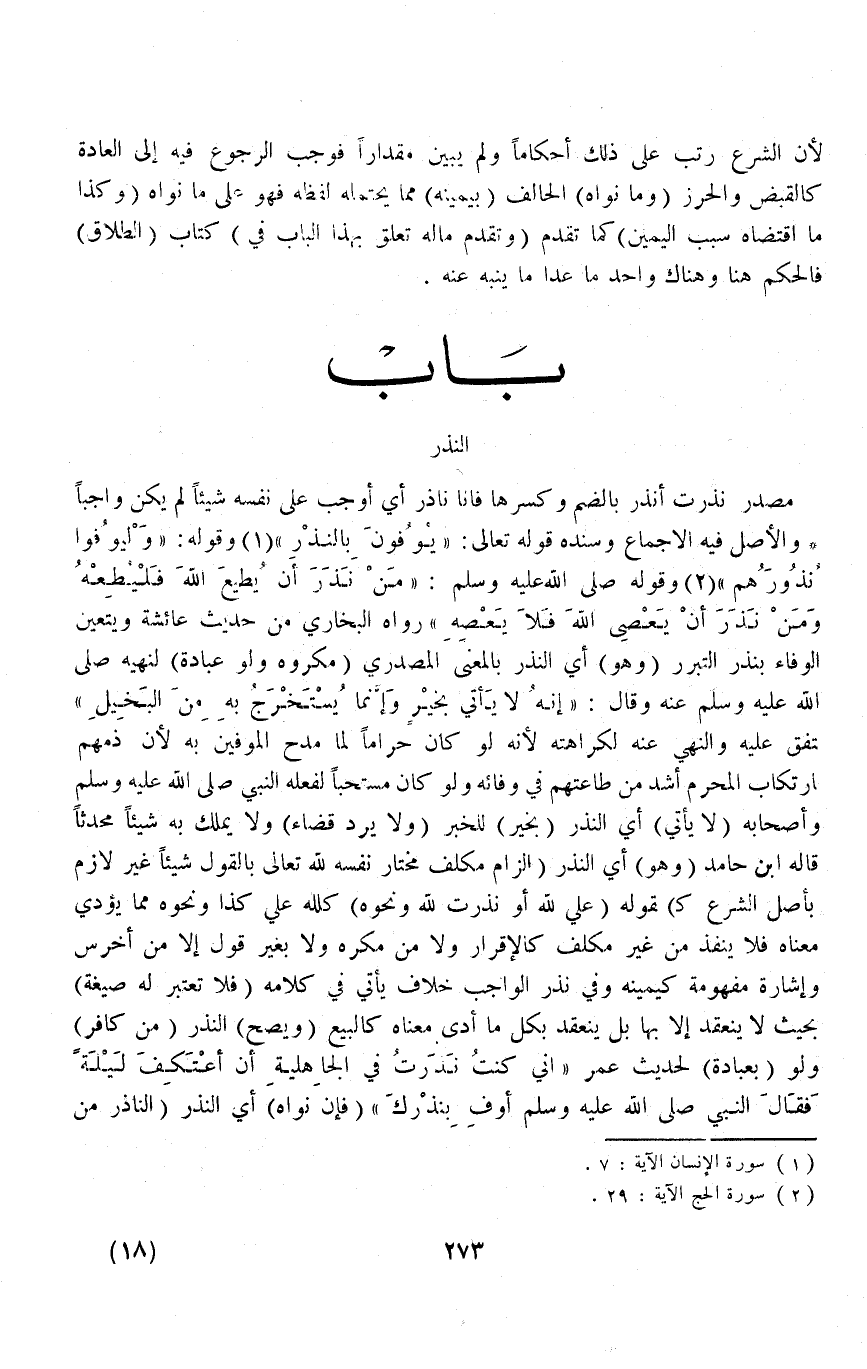 لأن الشرع رتب على ذلك أحكاماً ولم يبين مقداراً فوجب الرجوع فيه إلى العادة
كالقبض والحرز ( وما نواه ) الحالف ( بيمينه ) مما يحتمله لفظه فهو على ما نواه ( وكذا
ما اقتضاه سبب اليمين ) كما تقدم ( وتقدم ماله تعلق بهذا الباب في ) كتاب ( الطلاق )
فالحكم هنا وهناك واحد ما عدا ما ينبه عنه .
بَابْ
النذر
مصدر نذرت أنذر بالضم وكسرها فانا ناذر أي أوجب على نفسه شيئاً لم يكن واجباً
* والأصل فيه الاجماع وسنده قوله تعالى : « يُوفُونَ بِالنَّذْرِ »(١) وقوله : « وَلْيُوفُوا
نُذُورَهُم »(٢) وقوله صلى الله عليه وسلم : « مَنْ نَذَرَ أن يُطيعَ اللهَ فَلْيُطِعْهُ
وَمَنْ نَذَرَ أنْ يَعْصِي اللهَ فَلاَ يَعْصِهِ » رواه البخاري من حديث عائشة ويتعين
الوفاء بنذر التبرر ( وهو ) أي النذر بالمعنى المصدري ( مكروه ولو عبادة ) لنهيه صلى
الله عليه وسلم عنه وقال : « إنهُ لا يَأتي بخيْرٍ وَإنما يُسْتَخْرَجُ بهِ مِنَ البَخيلِ »
تفق عليه والنهي عنه لكراهته لأنه لو كان حراماً لما مدح الموفين به لأن ذمهم
ارتكاب المحرم أشد من طاعتهم في وفائه ولو كان مستحباً لفعله النبي صلى الله عليه وسلم
وأصحابه ( لا يأتي ) أي النذر ( بخير ) للخبر ( ولا يرد قضاء ) ولا يملك به شيئاً محدثاً
قاله ابن حامد ( وهو ) أي النذر ( الزام مكلف مختار نفسه لله تعالى بالقول شيئاً غير لازم
بأصل الشرع كـ ) قوله ( علي لله أو نذرت لله ونحوه ) كلله علي كذا ونحوه مما يؤدي
معناه فلا ينفذ من غير مكلف كالإقرار ولا من مكره ولا بغير قول إلا من أخرس
وإشارة مفهومة كيمينه وفي نذر الواجب خلاف يأتي في كلامه ( فلا تعتبر له صيغة )
بحيث لا ينعقد إلا بها بل ينعقد بكل ما أدى معناه كالبيع ( ويصح ) النذر ( من كافر )
ولو ( بعبادة ) لحديث عمر « اني كنتُ نَذَرتُ في الجاهليةِ أن أعْتَكِفَ لَيْلَةً
فقالَ النبي صلى الله عليه وسلم أوفِ بِنذْركَ » ( فإن نواه ) أي النذر ( الناذر من
( ١ ) سورة الإنسان الآية : ٧ .
( ٢ ) سورة الحج الآية : ٢٩ .
٢٧٣ (١٨)